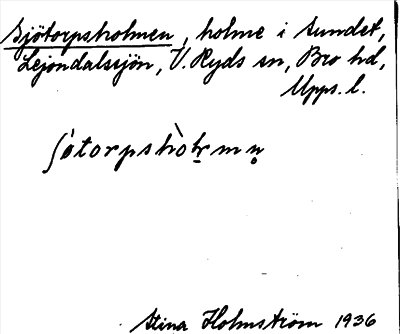 Sjötorpsholmen, holme i sundet,
Lejondalssjön, V. Ryds sn, Bro hd,
Upps. l.
Stina Holmström 1936